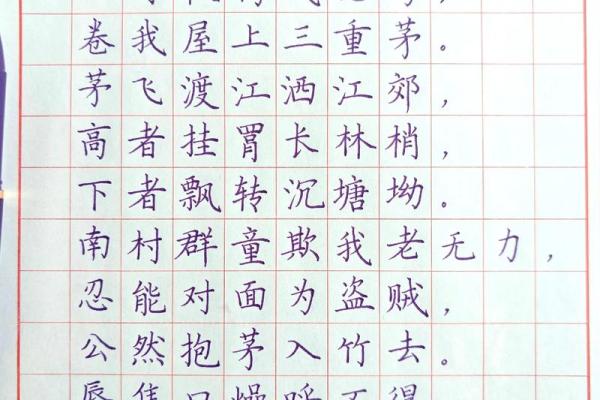 卷我屋上三重茅。
茅飞渡江洒江郊，
高者挂罥长林梢，
下者飘转沉塘坳。
南村群童欺我老无力，
忍能对面为盗贼，
公然抱茅入竹去。
唇焦口燥呼不得